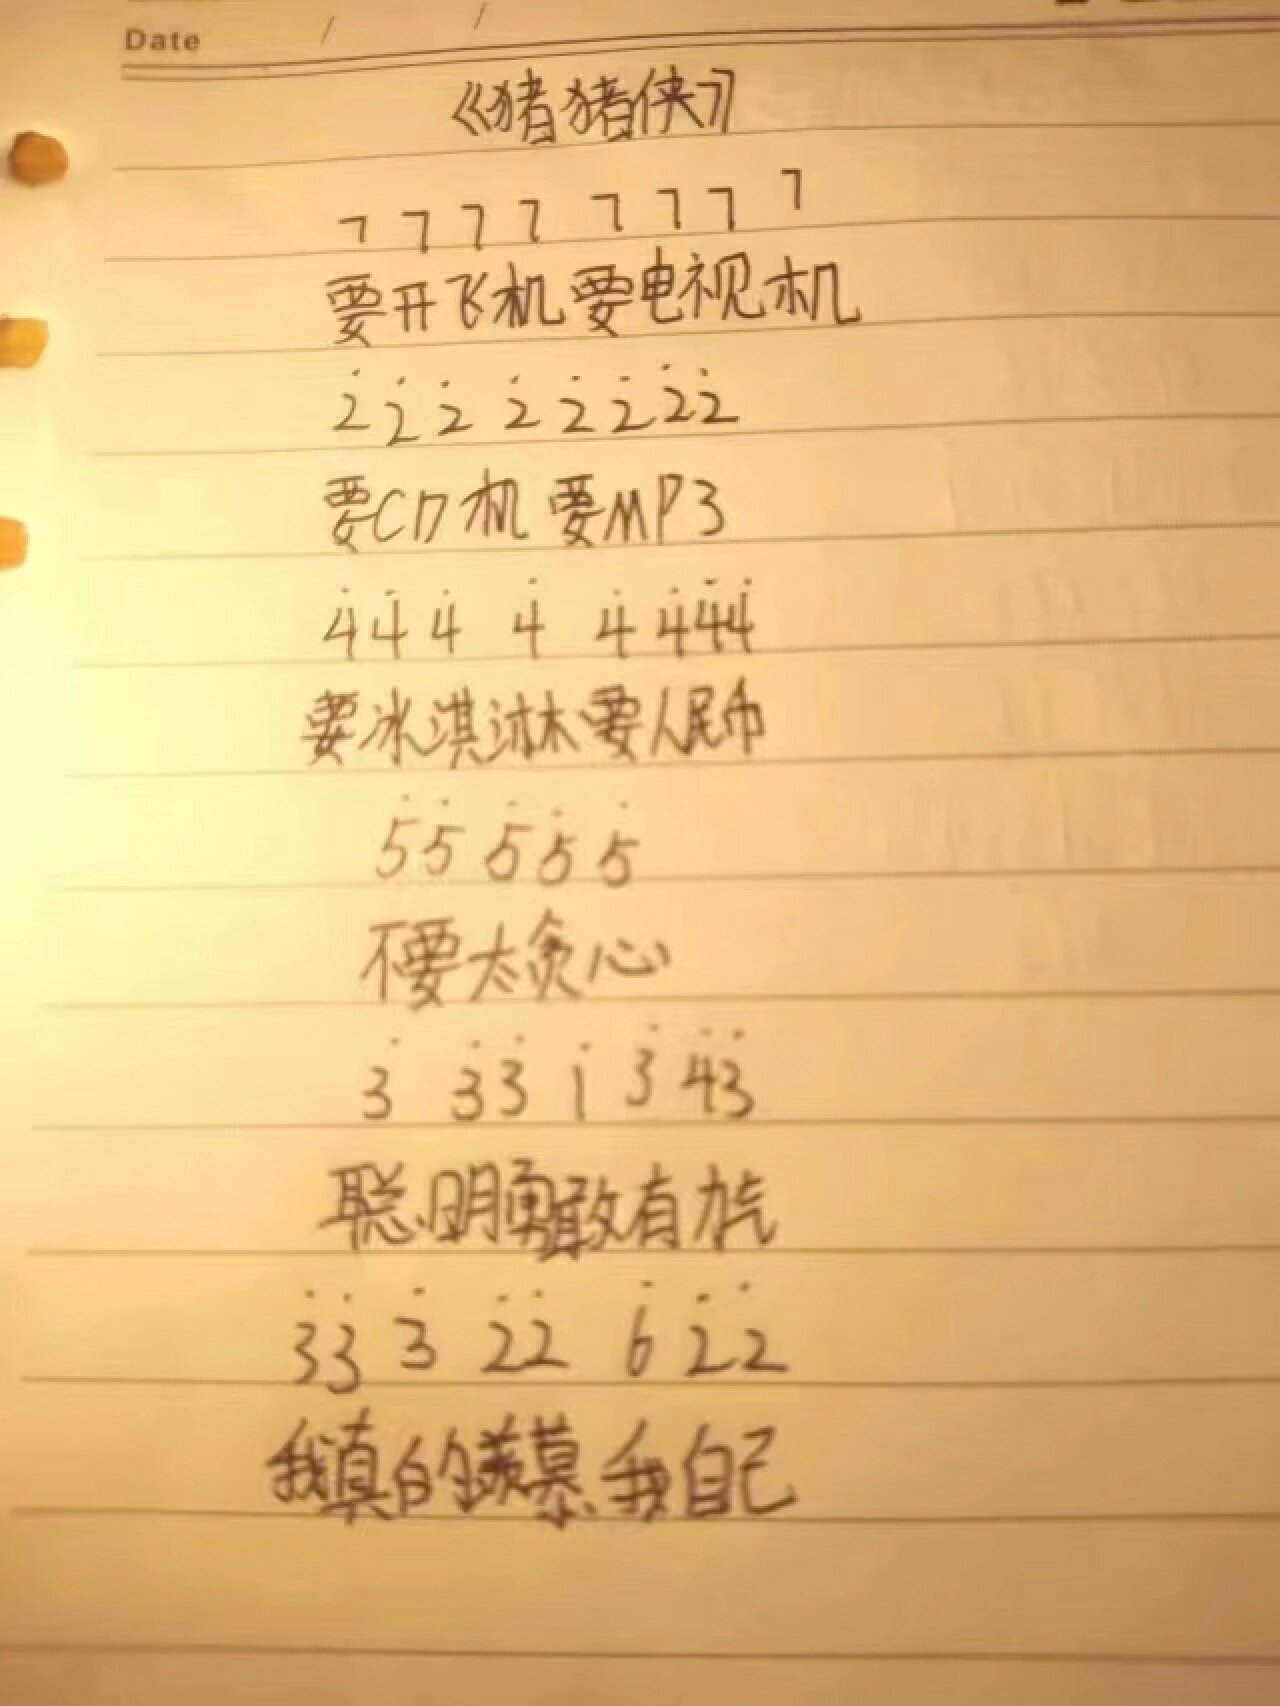 Date / /
《猪猪侠》
7 7 7 7 7 7 7 7
要开飞机要电视机
2̇ 2̇ 2̇ 2̇ 2̇ 2̇ 2̇ 2̇
要CD机要MP3
4̇ 4̇ 4̇ 4̇ 4̇ 4̇ 4̇ 4̇
要冰淇淋要人民币
5̇ 5̇ 5̇ 5̇ 5̇
不要太贪心
3̇ 3̇ 3̇ 1̇ 3̇ 4̇ 3̇
聪明勇敢有力气
3̇ 3̇ 3̇ 2̇ 2̇ 6̇ 2̇ 2̇
我真的羡慕我自己